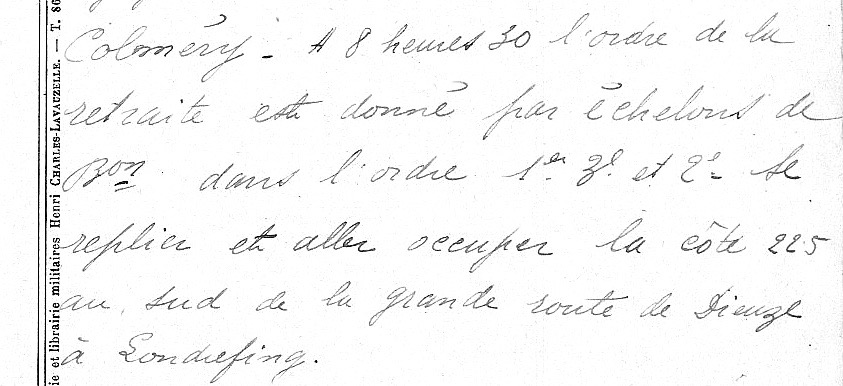 Colméry - A 8 heures 30 l'ordre de la
retraite est donné par échelons de
Bon dans l'ordre 1er 3e et 2e - Se
replier et aller occuper la côte 225
au sud de la grande route de Dieuze
à Londrefing.
ie et librairie militaires Henri CHARLES-LAVAUZELLE. — T. 86